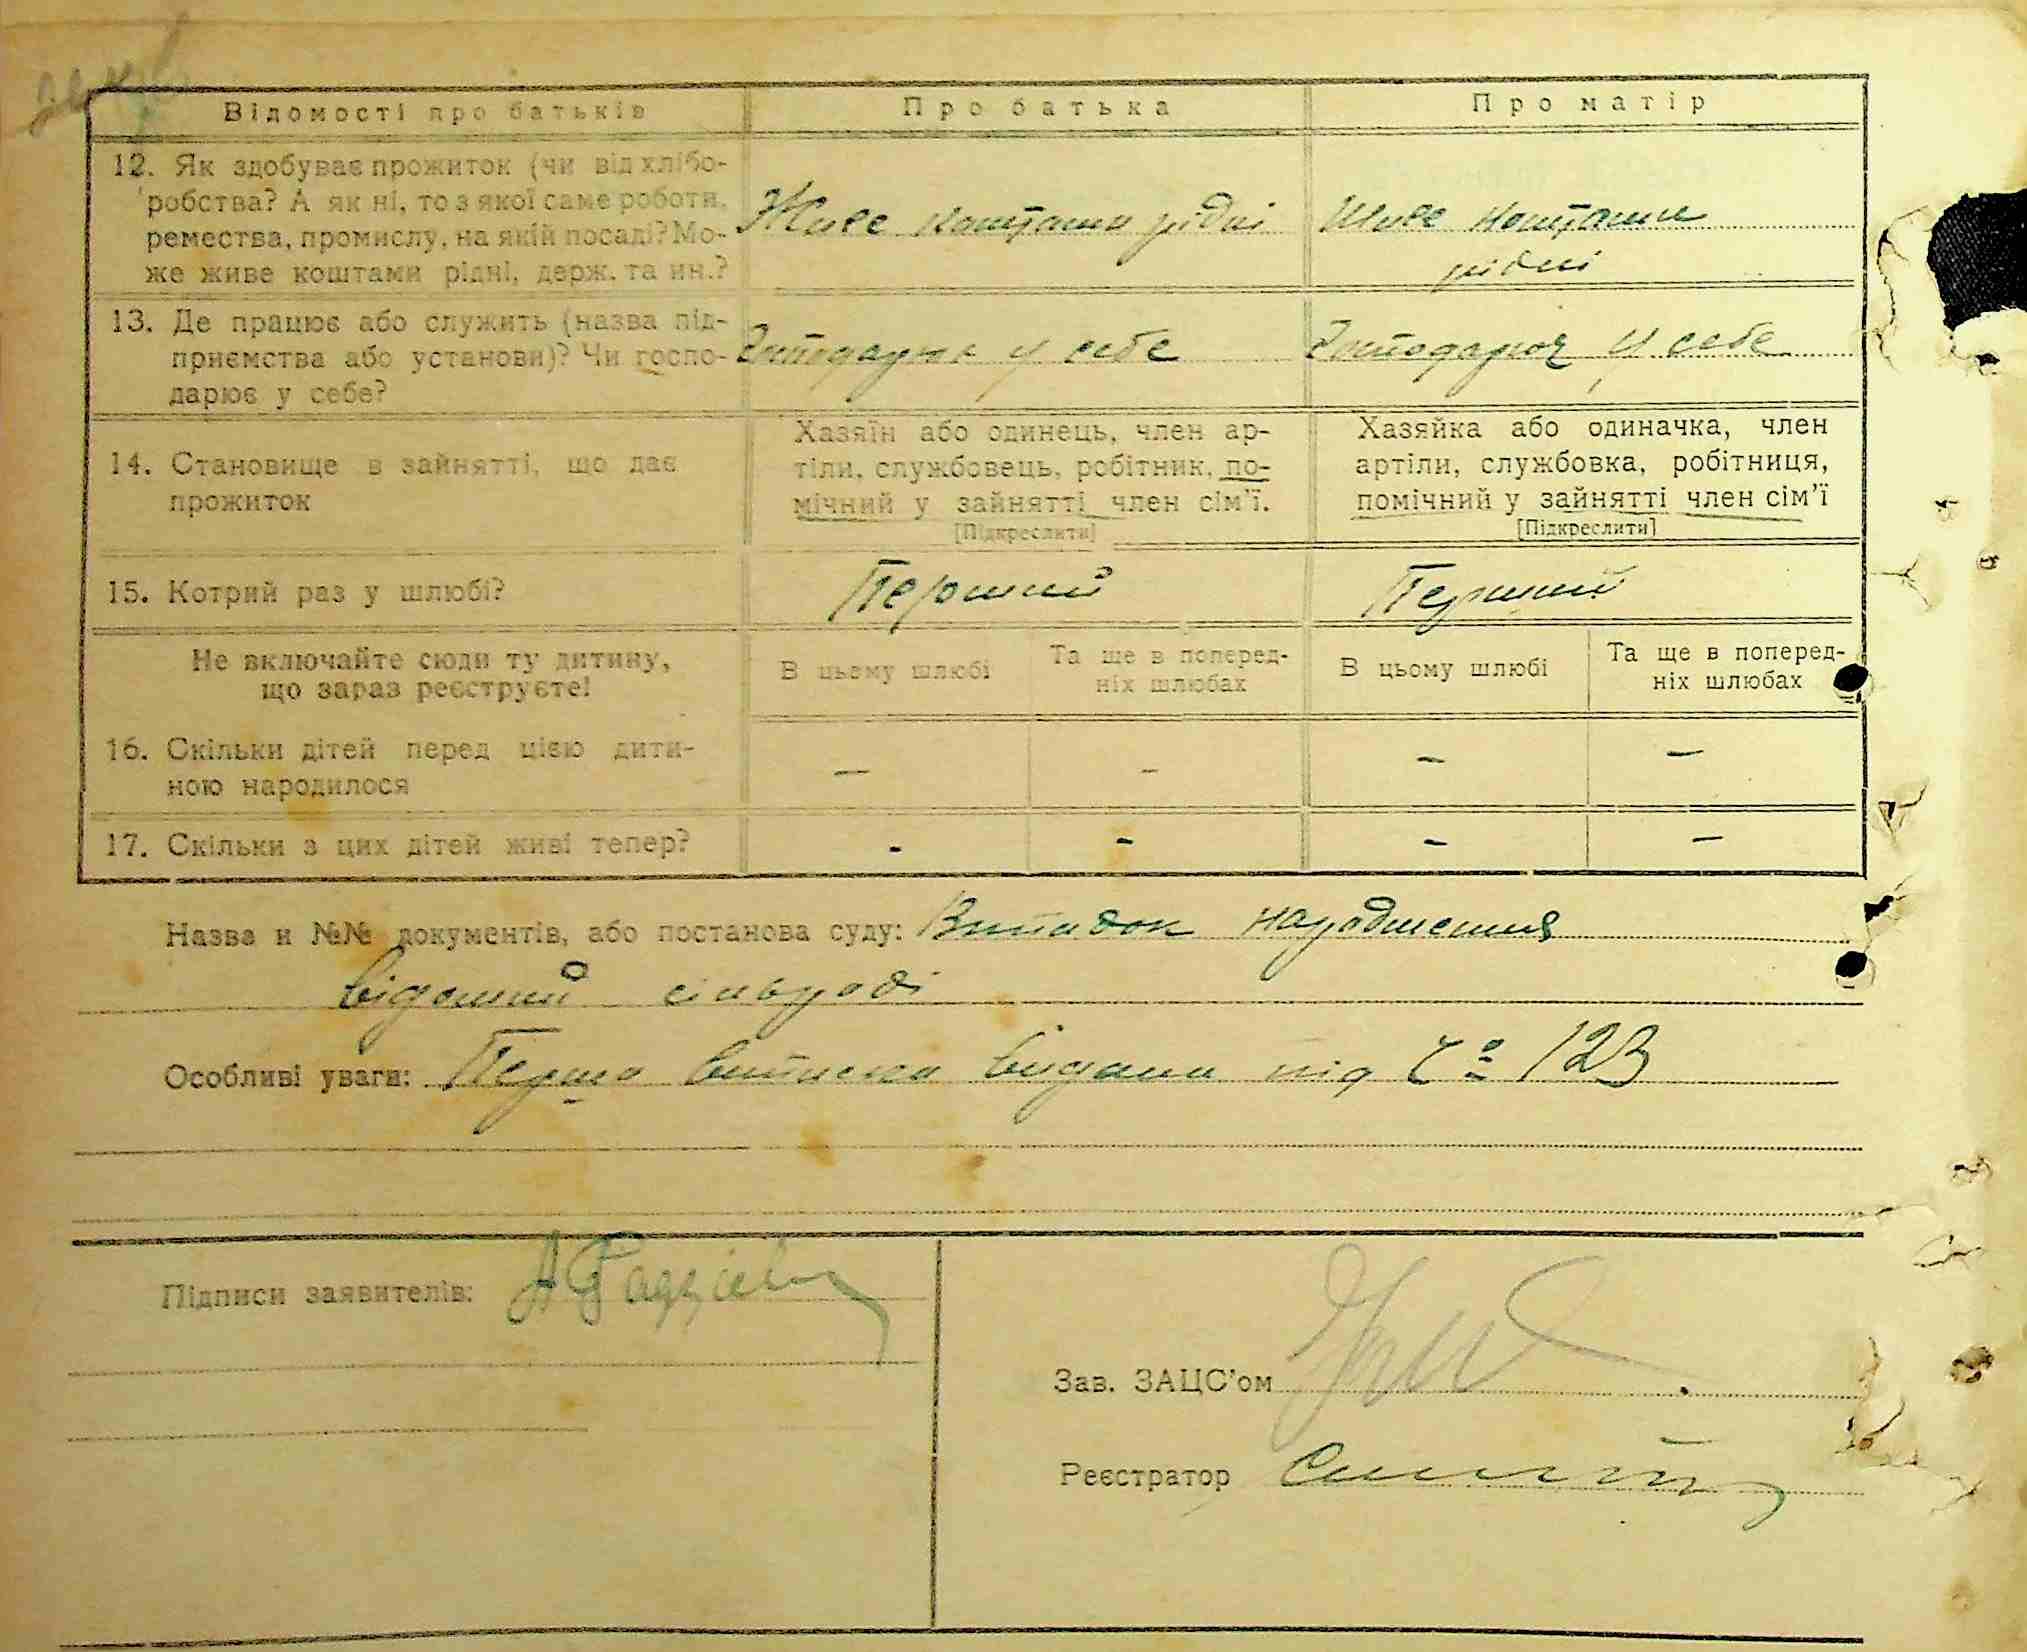 Відомості про батьків Про батька Про матір
12. Як здобуває прожиток (чи від хлібо-
робства? А як ні, то з якої саме роботи,
ремества, промислу, на якій посаді? Мо-
же живе коштами рідні, держ. та ин.?
Живе коштами рідні
Живе коштами
рідні
13. Де працює або служить (назва під-
приємства або установи)? Чи госпо-
дарює у себе?
Господарює у себе
Господарює у себе
14. Становище в зайнятті, що дає
прожиток
Хазяїн або одинець, член ар-
тіли, службовець, робітник, по-
мічний у зайнятті член сім'ї.
[Підкреслити]
Хазяйка або одиначка, член
артіли, службовка, робітниця,
помічний у зайнятті член сім'ї
[Підкреслити]
15. Котрий раз у шлюбі? Перший Перший
Не включайте сюди ту дитину,
що зараз реєструєте!
В цьому шлюбі
Та ще в поперед-
ніх шлюбах
В цьому шлюбі
Та ще в поперед-
ніх шлюбах
16. Скільки дітей перед цією дити-
ною народилося
— - — —
17. Скільки з цих дітей живі тепер? - - - —
Назва и №№ документів, або постанова суду: Випадок народження
відомий сільраді
Особливі уваги: Перша виписка видана під Ч° 123
Підписи заявителів:
Зав. ЗАЦС'ом
Реєстратор